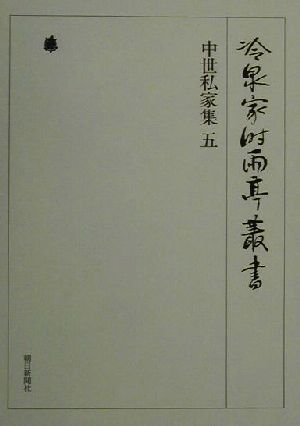 冷泉家時雨亭叢書
中世私家集 五
朝日新聞社